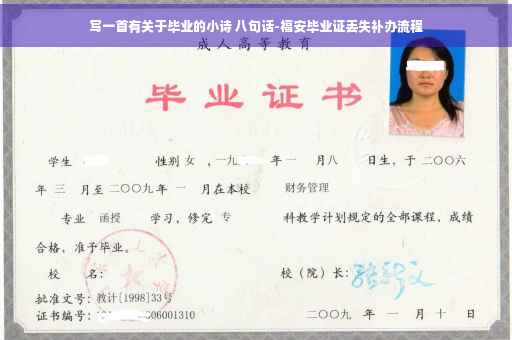 写一首有关于毕业的小诗 八句话-福安毕业证丢失补办流程
成人高等教育
毕业证书
学生 性别 女 ，一九 年一 月八 日生，于 二〇〇六
年 三 月至 二〇〇九 年 一 月在本校 财务管理
专业 函授 学习，修完 专 科教学计划规定的全部课程，成绩
合格，准予毕业。
校 名： 校（院）长：
批准文号：教计[1998]33号
证书编号： 606001310 二〇〇九 年 一 月 十 日